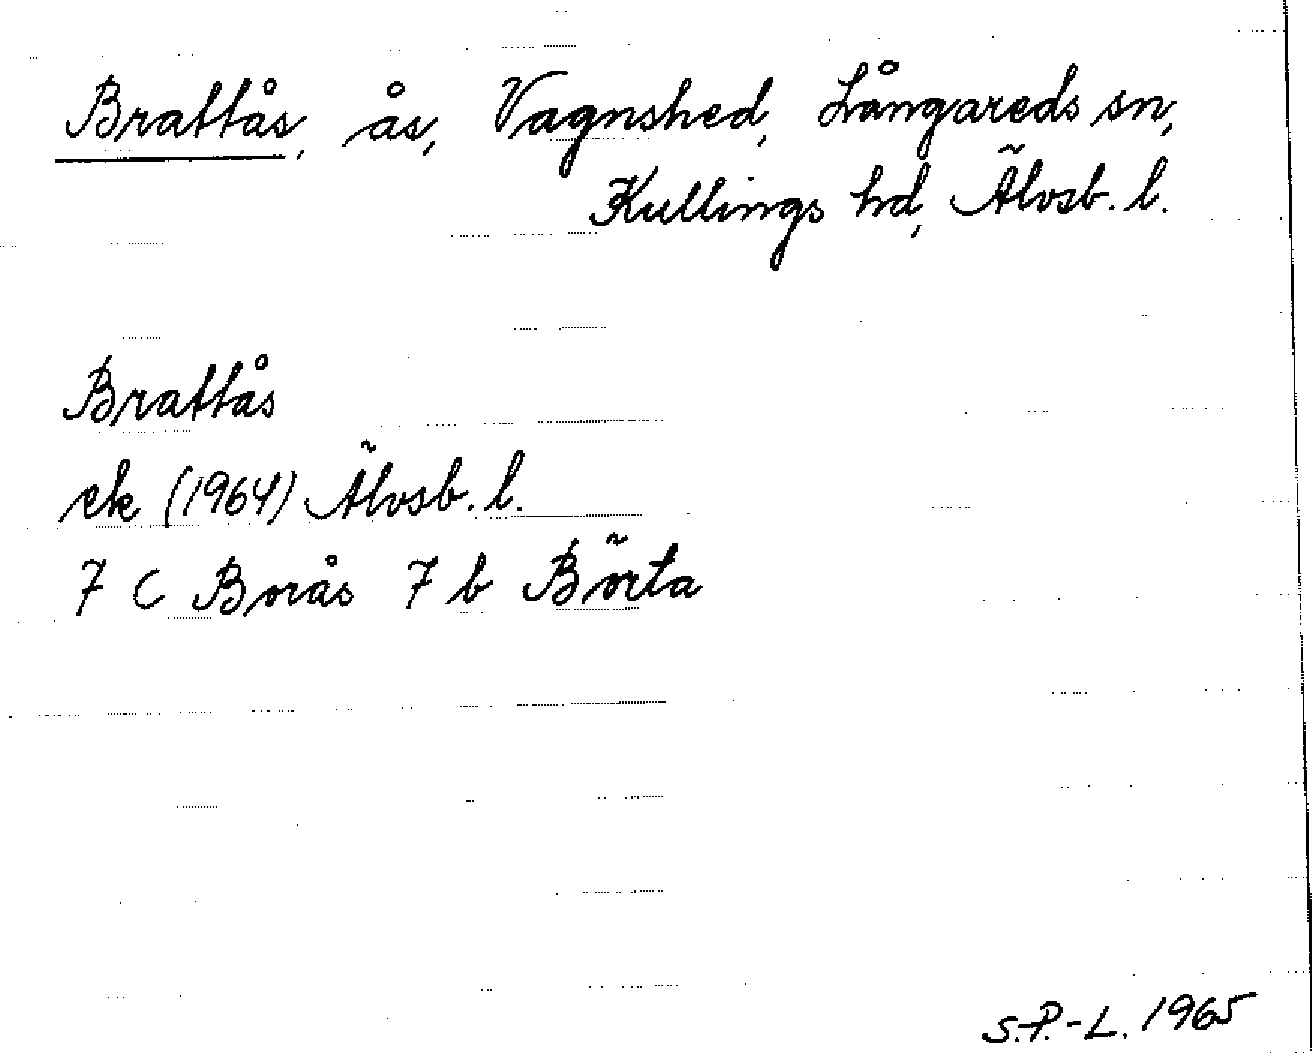 Brattås, ås, Vagnshed, Långareds sn,
Kullings hd, Älvsb. l.
Brattås
ek (1964) Älvsb. l.
7 C Borås 7 b Börta
S.P.-L. 1965